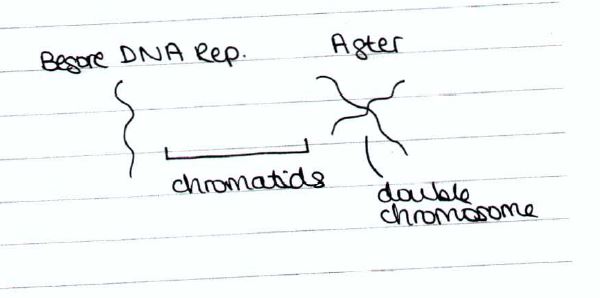 Before DNA Rep.
After
chromatids
double
chromosome